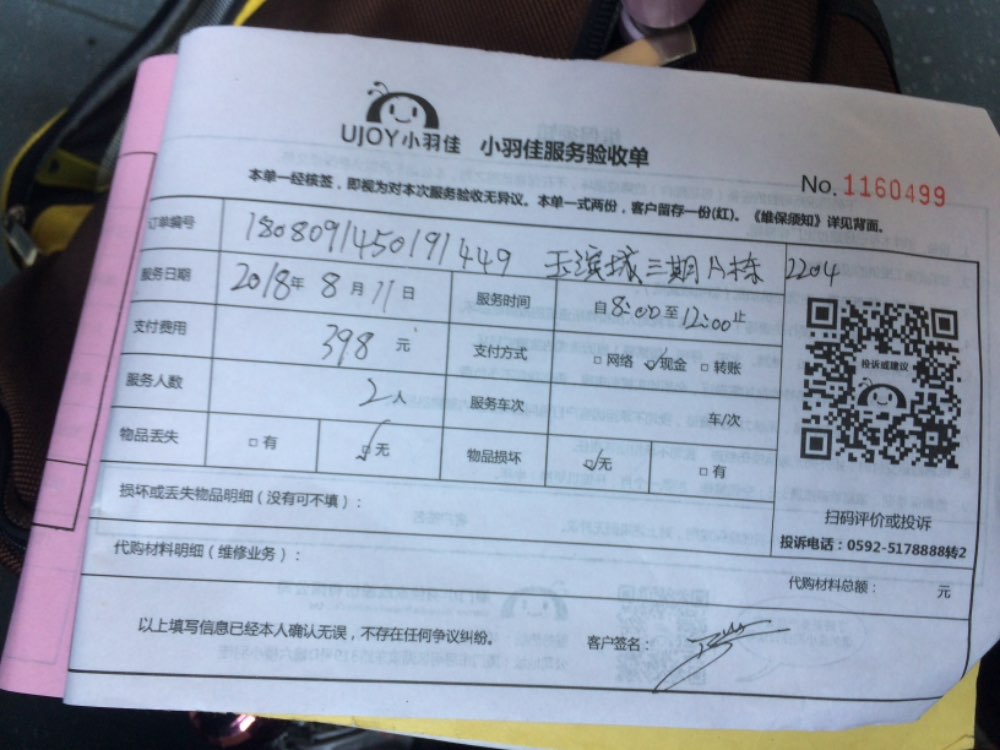 UJOY小羽佳 小羽佳服务验收单
No. 1160499
本单一经核签，即视为对本次服务验收无异议。本单一式两份，客户留存一份(红)。《维保须知》详见背面。
订单编号 180809145019 1449 玉滨城三期A栋 2204
服务日期 2018年 8月 11日 服务时间 自8:00至12:00止
支付费用 398元 支付方式 □网络 ☑现金 □转账
投诉或建议
服务人数 2人 服务车次 车/次
物品丢失 □有 ☑无 物品损坏 ☑无 □有
损坏或丢失物品明细（没有可不填）：
扫码评价或投诉
投诉电话：0592-5178888转2
代购材料明细（维修业务）：
代购材料总额： 元
以上填写信息已经本人确认无误，不存在任何争议纠纷。
客户签名：